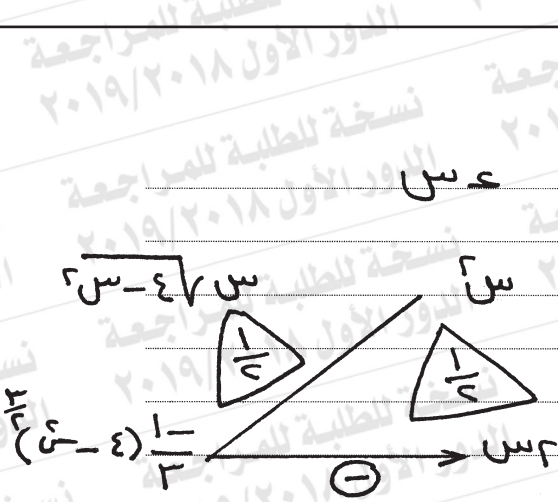 نسخة للطلبة للمراجعة
الدور الأول ٢٠١٨/٢٠١٩
ء س
س² س√٤−س²
½ ½
٢س −١/٣ (٤−س²)^٣/٢
−